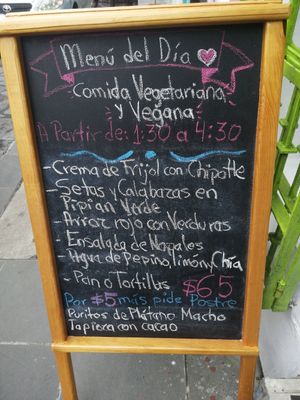 Menú del Día
Comida Vegetariana
y Vegana
A Partir de: 1:30 a 4:30
-Crema de Frijol con Chipotle
-Setas y Calabazas en
Pipian Verde
-Arroz rojo con Verduras
-Ensalada de Nopales
-Agua de Pepino, limón y Chía
-Pan o Tortillas $65
Por $5 más pide Postre
Puritos de Plátano Macho
Tapioca con cacao